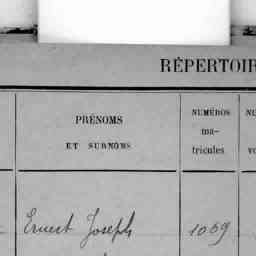 RÉPERTOIR
PRÉNOMS
ET SURNOMS
NUMÉROS
ma-
tricules
Ernest Joseph
1069